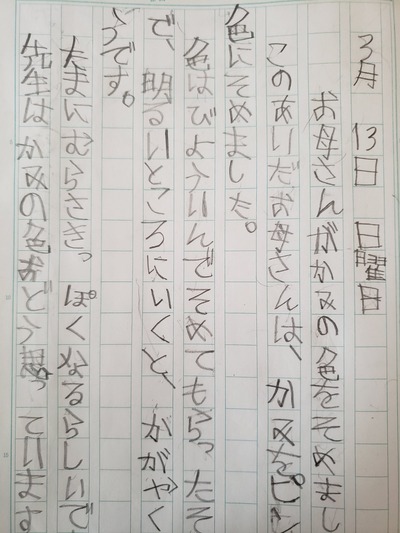 3月 13日 日曜日
お母さんがかみの色をそめまし
このあいだお母さんは、かみをピン
色にそめました。
色はびよういんでそめてもらったそ
で、明るいところにいくと、かがやく
うです。
たまにむらさきっぽくなるらしいで
先生はかみの色おどう思っています